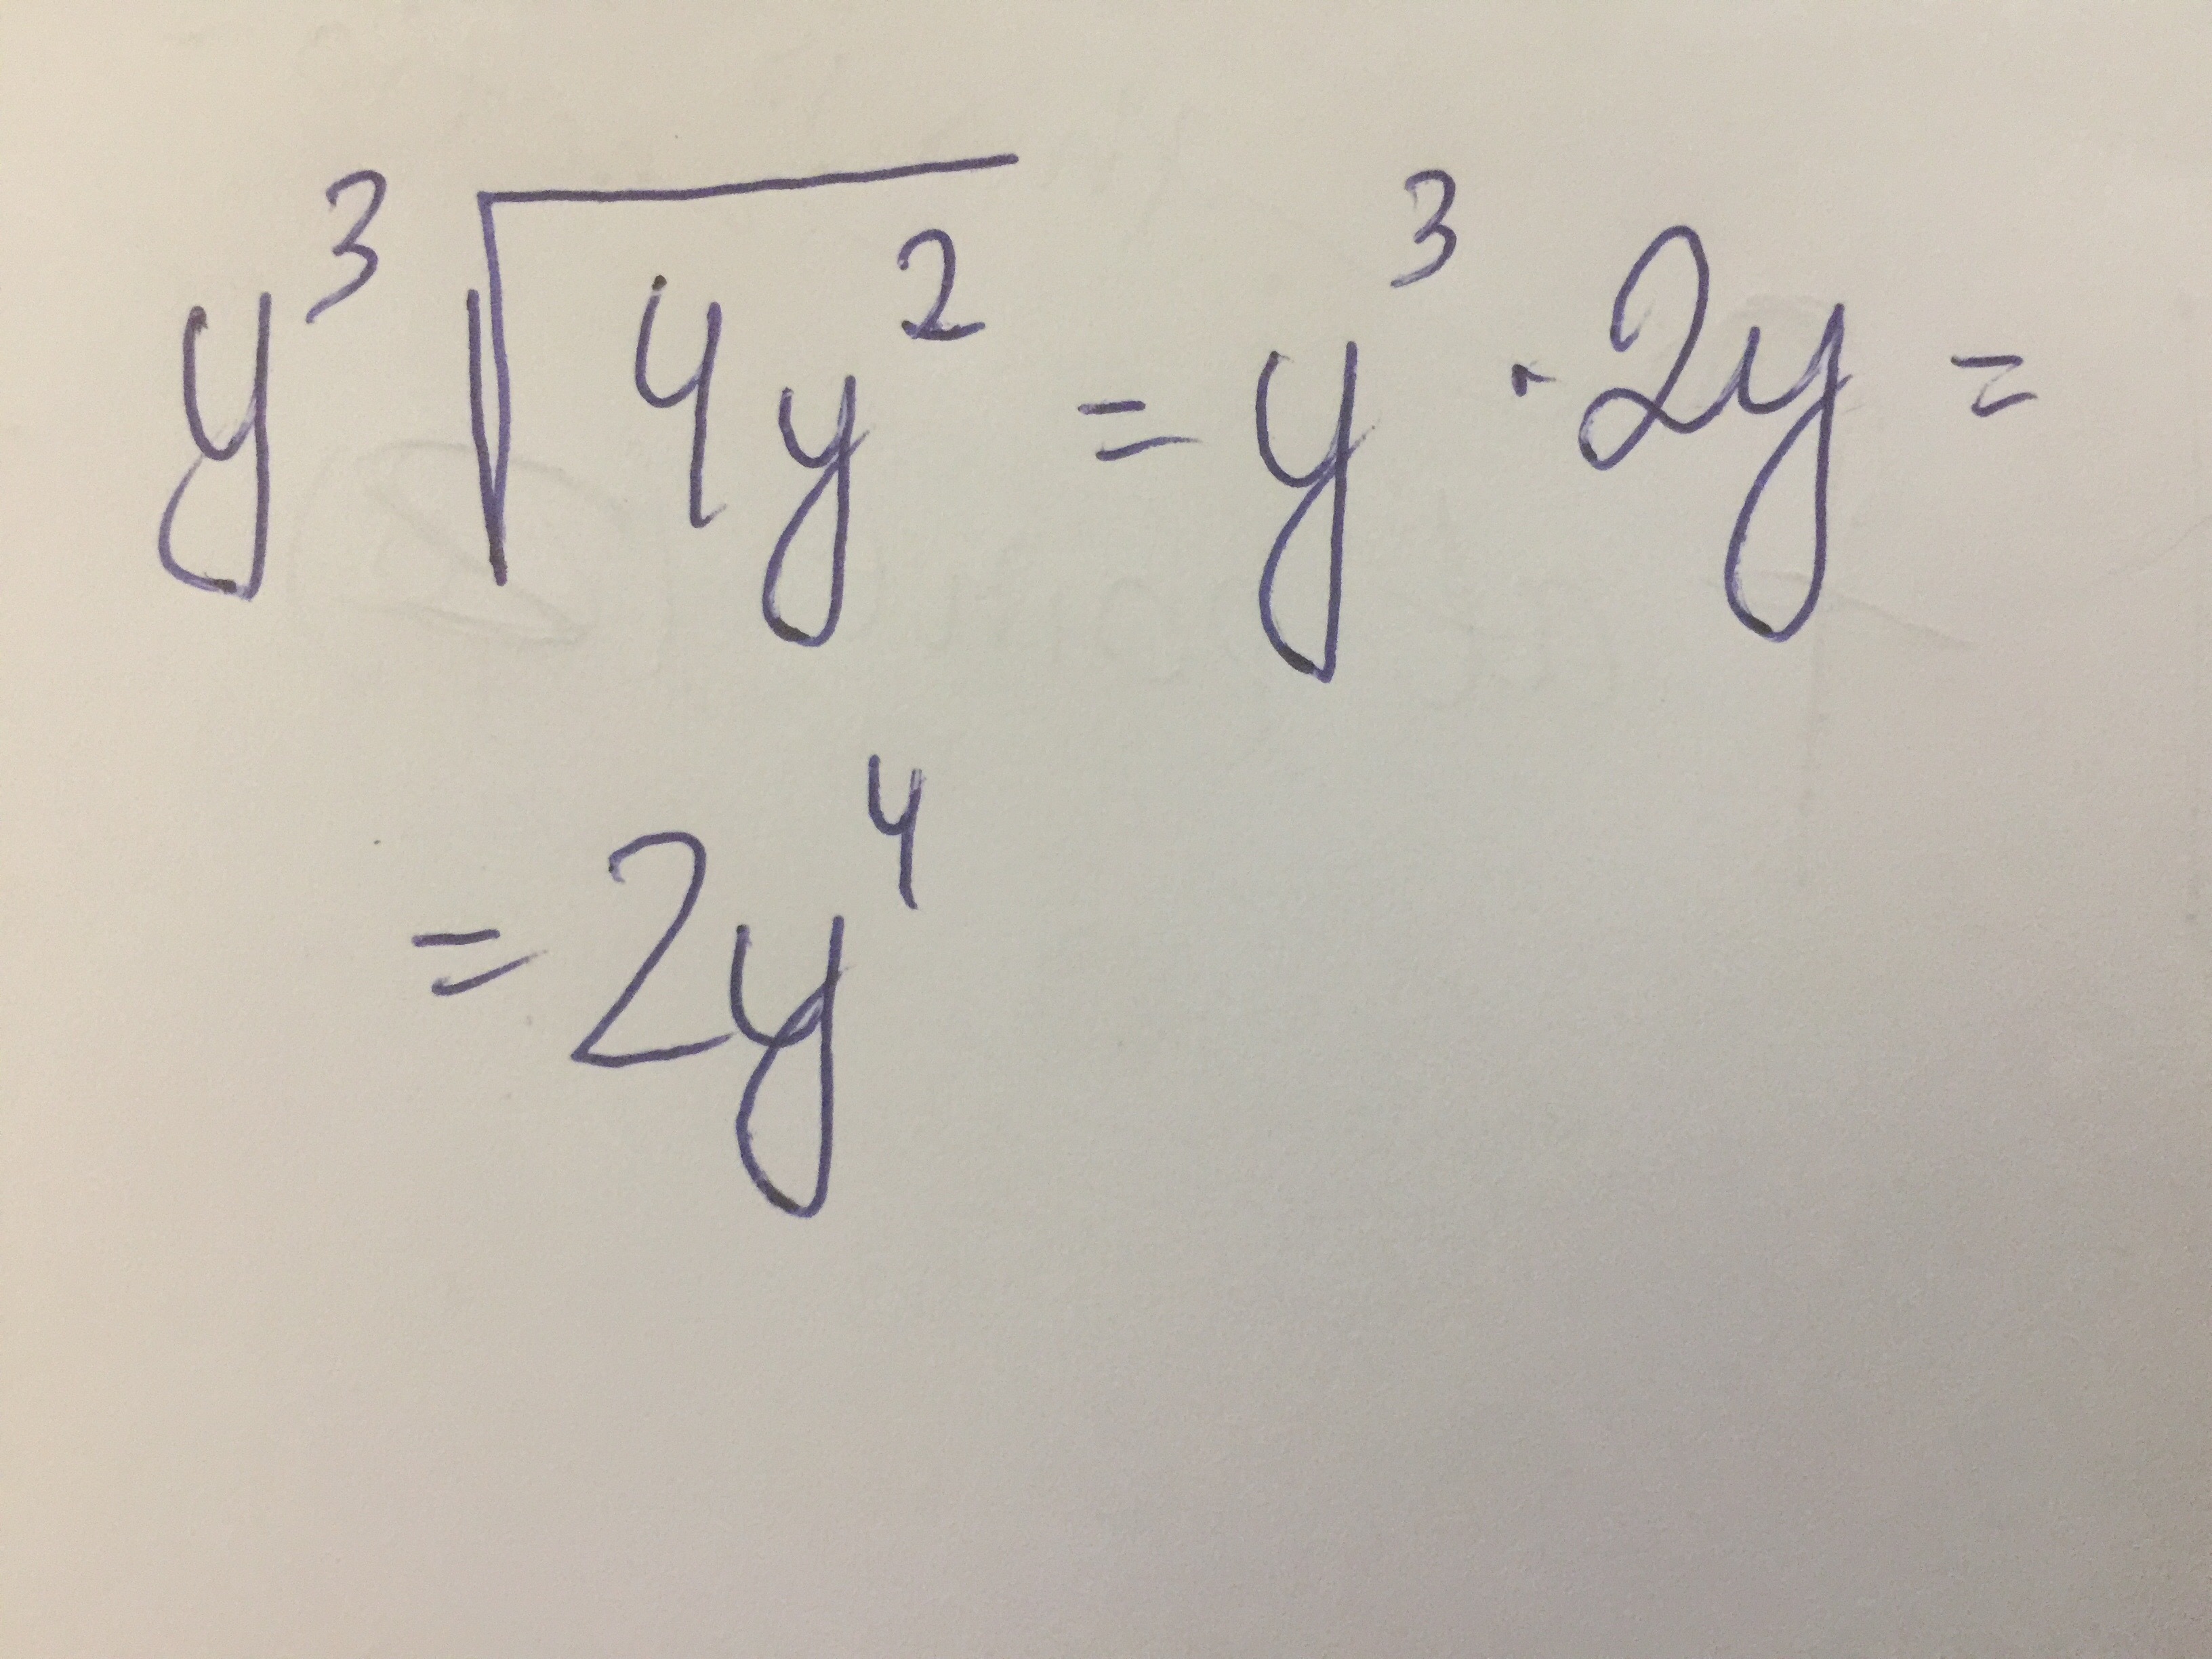 y³ √4y² = y³ · 2y =
= 2y⁴